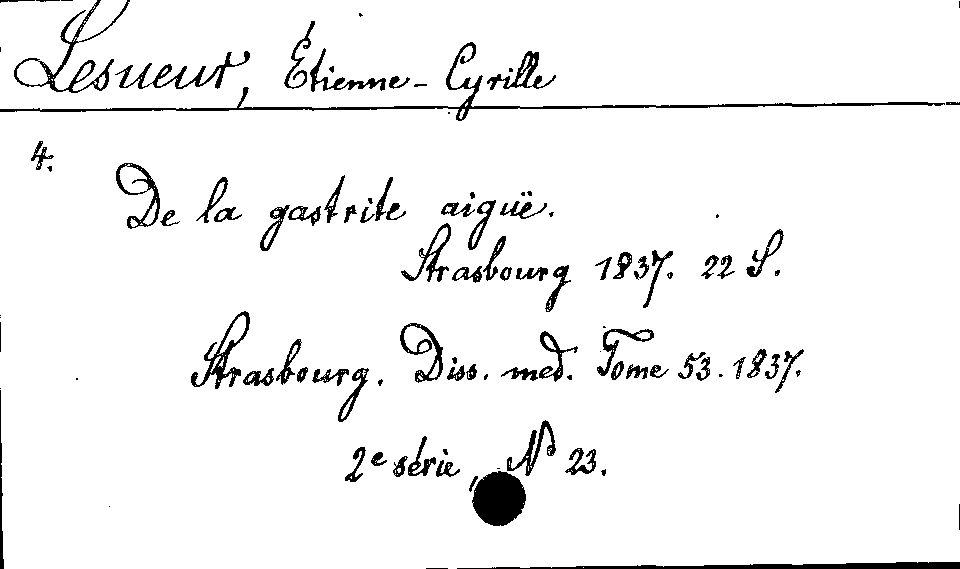 Lesueur, Étienne-Cyrille
4.
De la gastrite aiguë.
Strasbourg 1837. 22 S.
Strasbourg. Diss. med. Tome 53. 1837.
2e série, No 23.